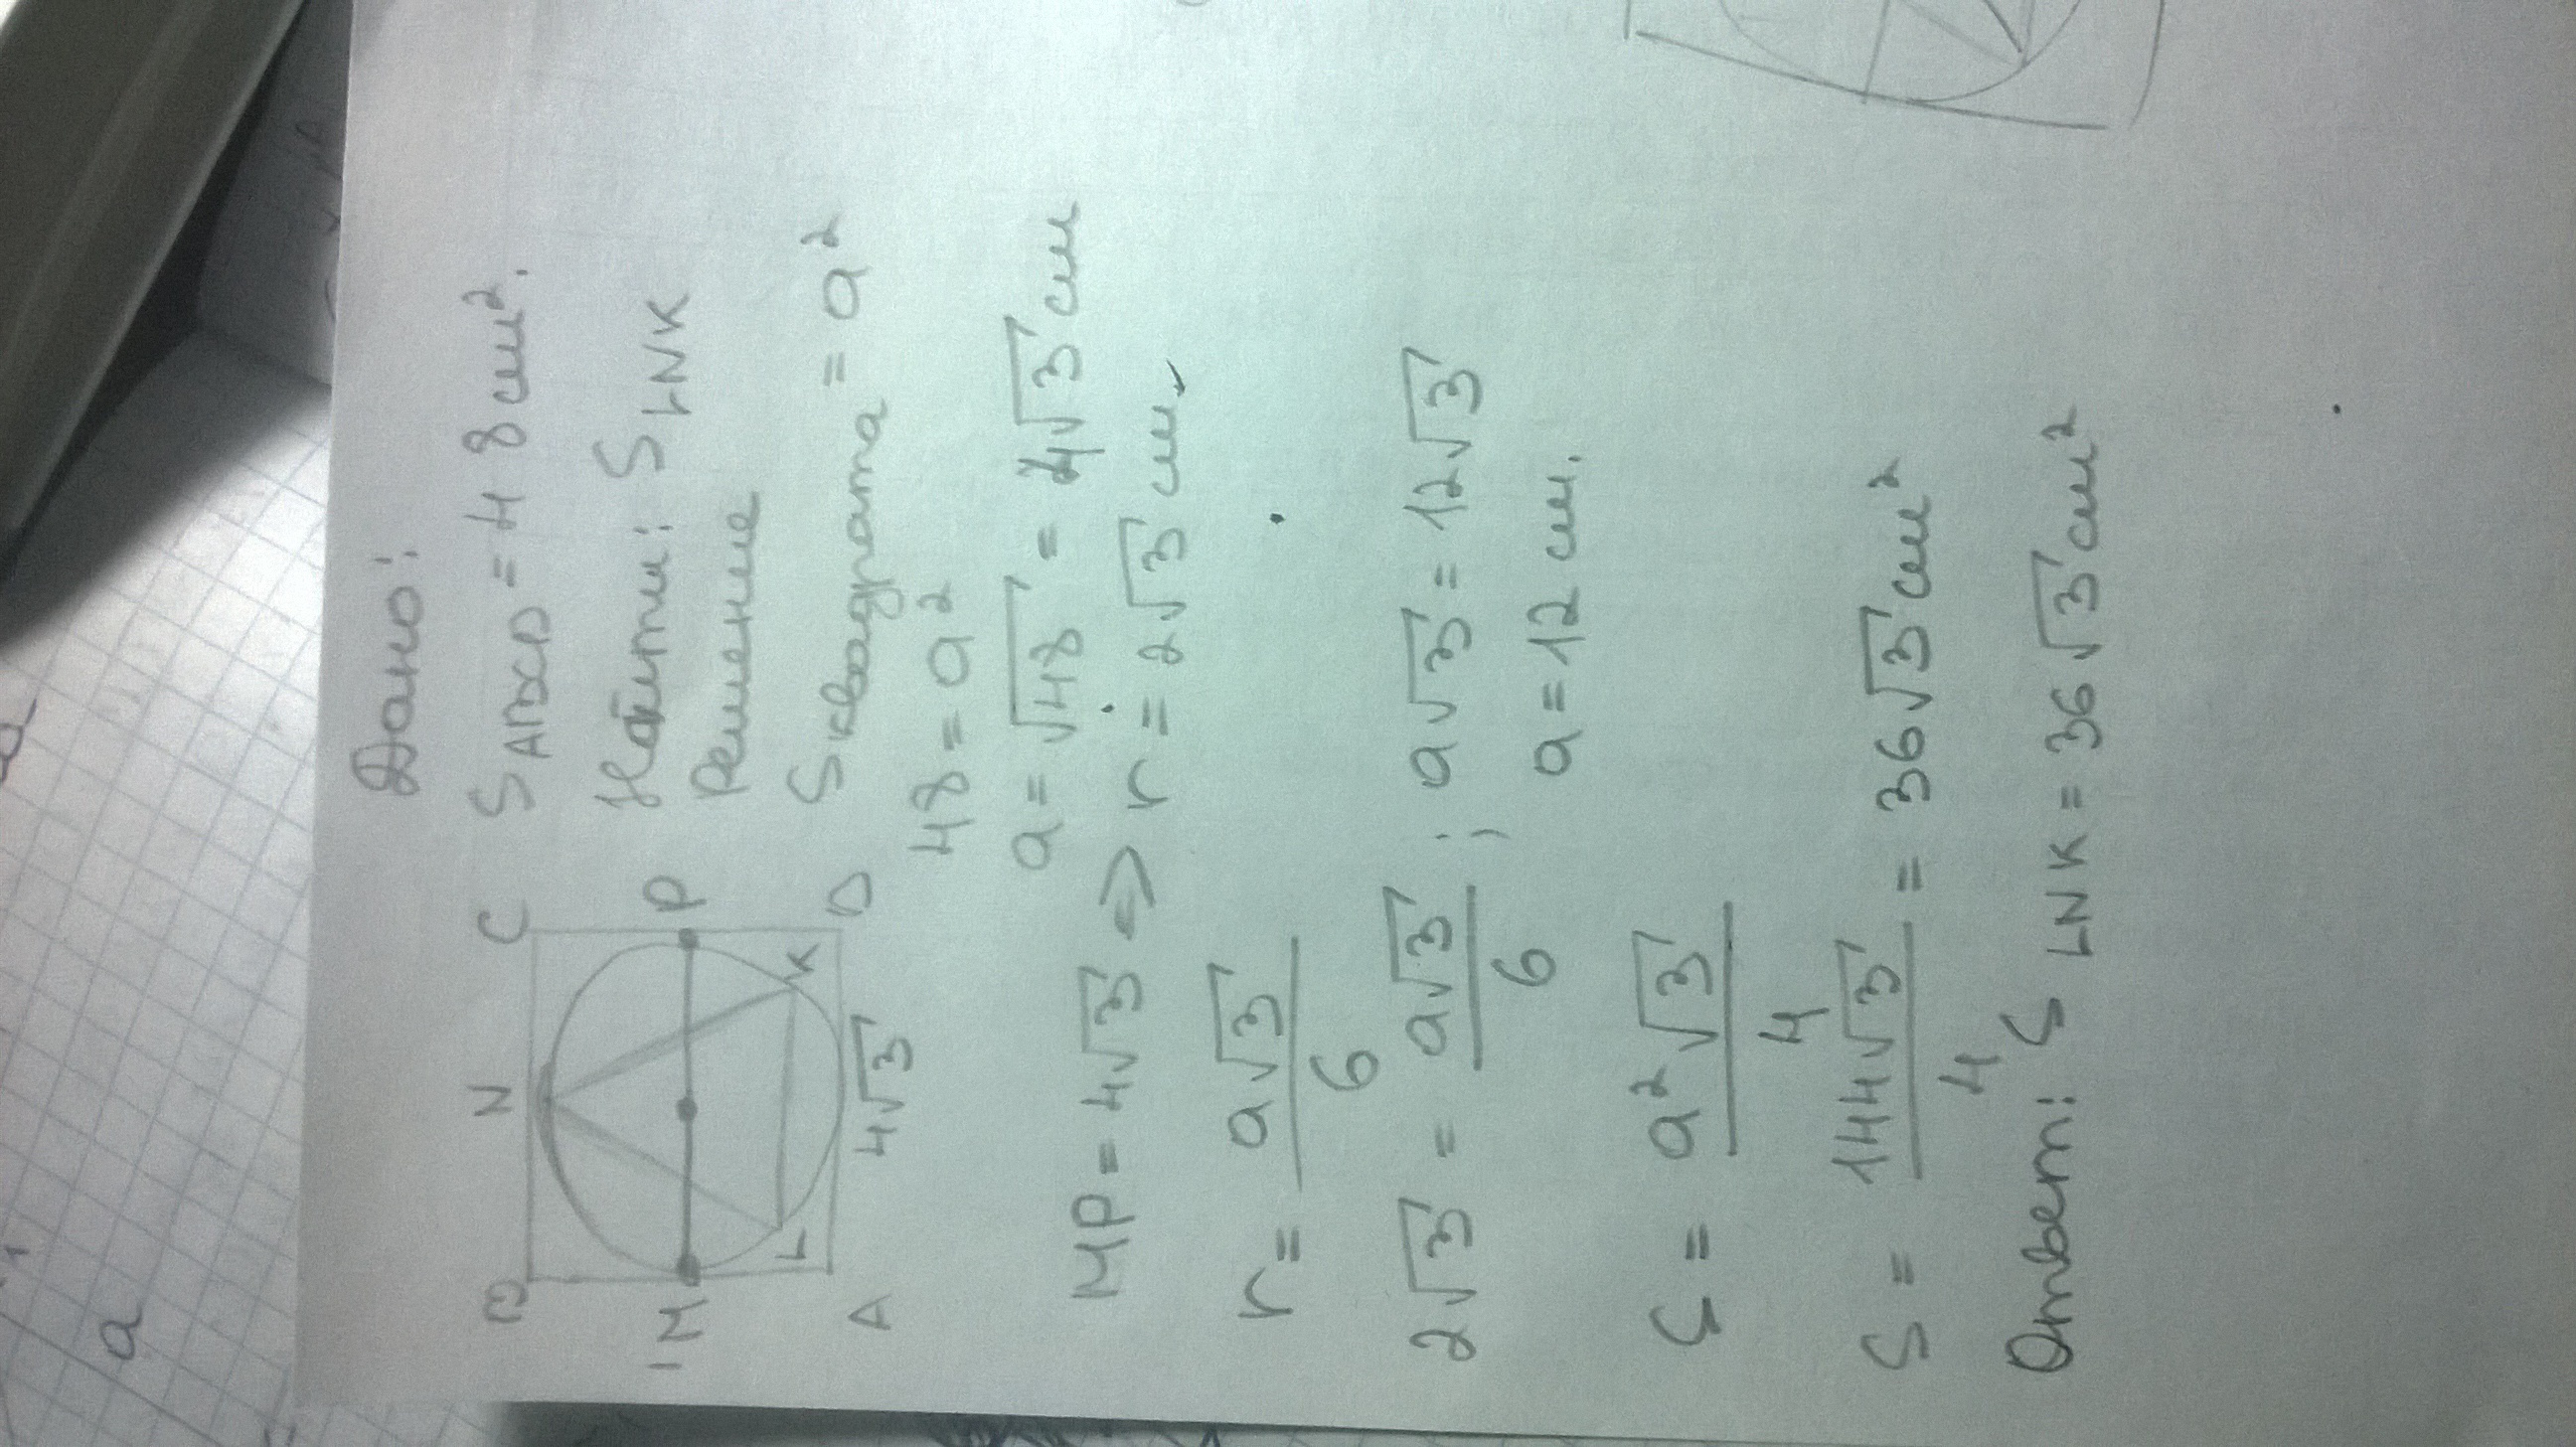 Дано:
B N C
S ABCD = 48 см².
Найти: S LNK
M P
Решение
L K
A 4√3 D
S квадрата = a²
48 = a²
a = √48 = 4√3 см
MP = 4√3 => r = 2√3 см
r = a√3/6
2√3 = a√3/6 ; a√3 = 12√3
a = 12 см.
S = a²√3/4
S = 144√3/4 = 36√3 см²
Ответ: S LNK = 36√3 см²
a